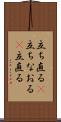 立ち直る
立ちなおる
立直る